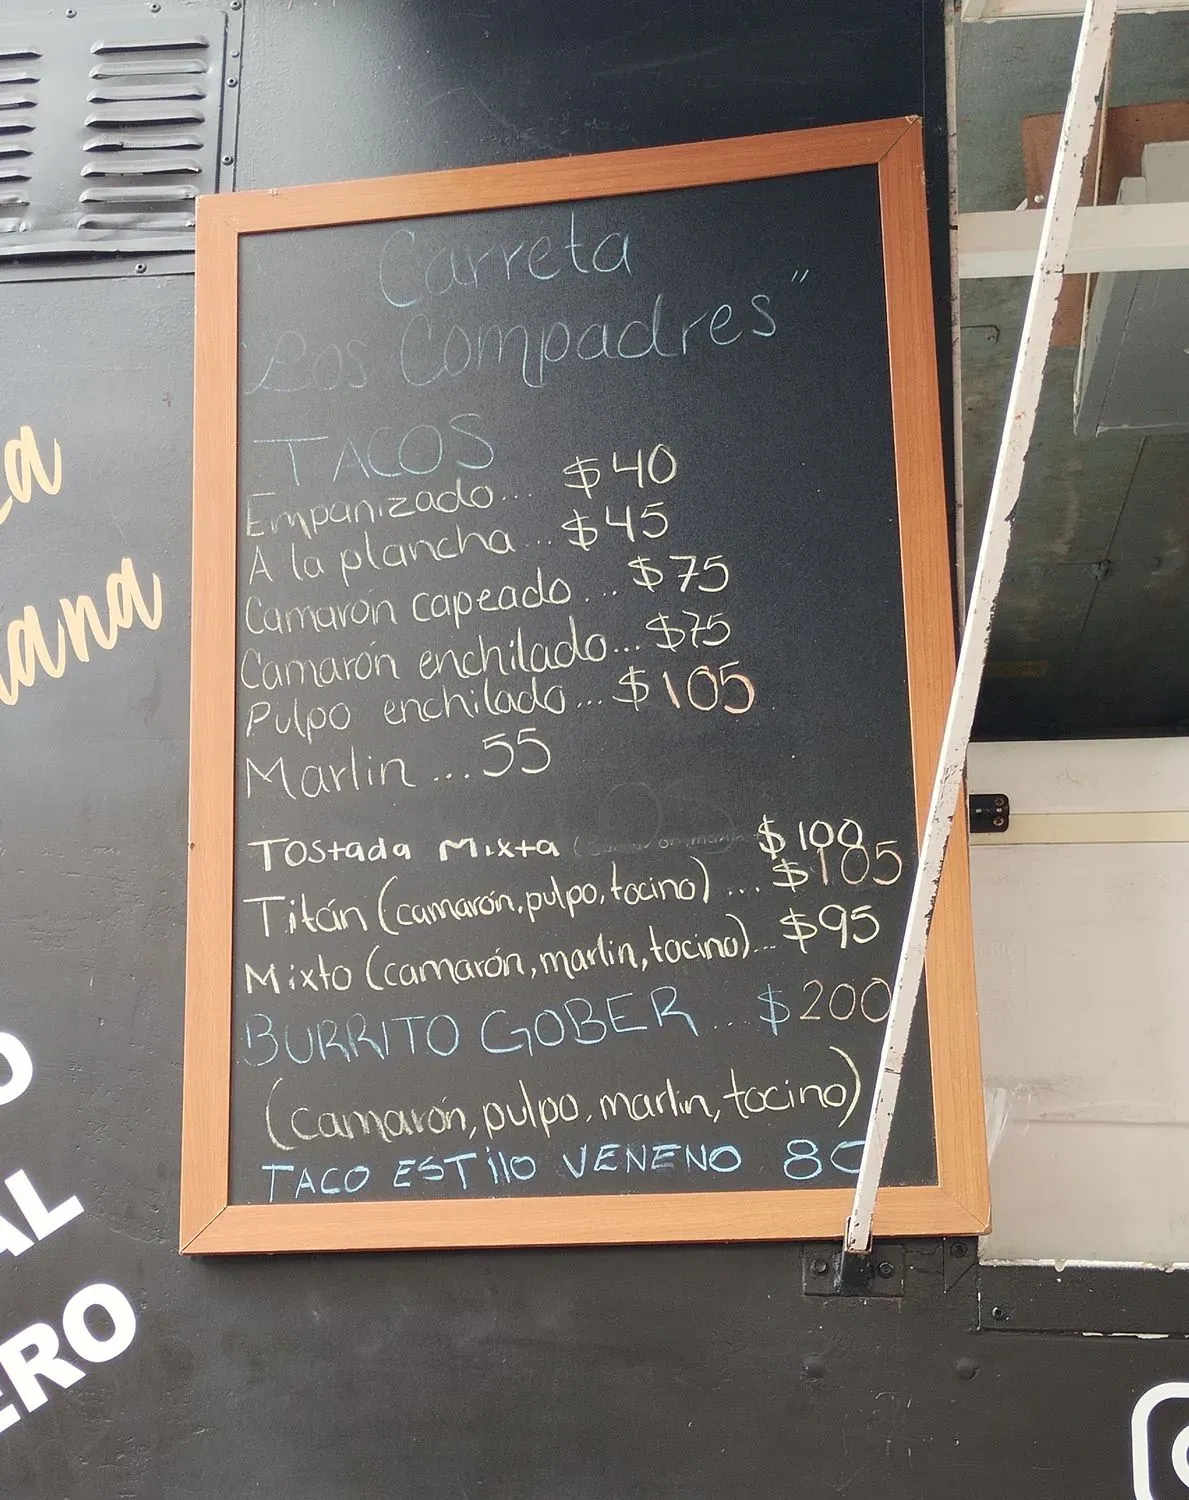 Carreta
"Los Compadres"
TACOS
Empanizado... $40
A la plancha... $45
Camarón capeado... $75
Camarón enchilado... $75
Pulpo enchilado... $105
Marlin... 55
Tostada Mixta $100
Titán (camarón, pulpo, tocino)... $105
Mixto (camarón, marlin, tocino)... $95
BURRITO GOBER... $200
(camarón, pulpo, marlin, tocino)
TACO ESTilo VENENO 80